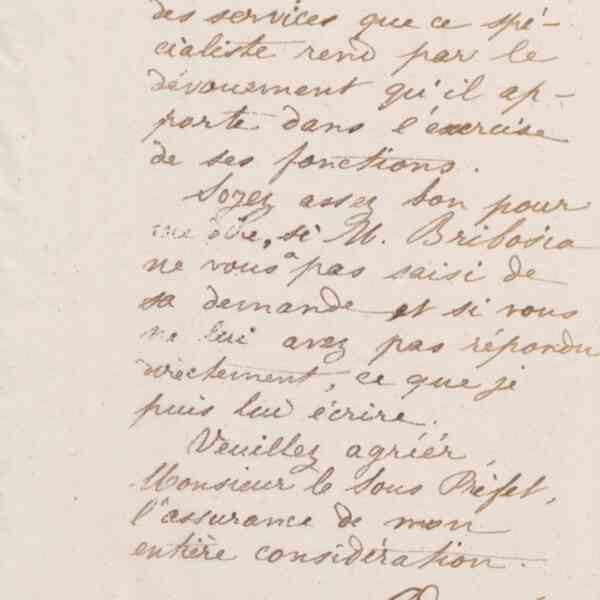 des services que ce spé-
cialiste rend par le
dévouement qu'il ap-
porte dans l'éxercise
de ses fonctions.
Soyez assez bon pour
me dire, si M. Bribosia
ne vous a pas saisi de
sa demande et si vous
ne lui avez pas répondu
directement, ce que je
puis lui écrire.
Veuillez agréér,
Monsieur le Sous Préfet,
l'assurance de mon
entière considération.